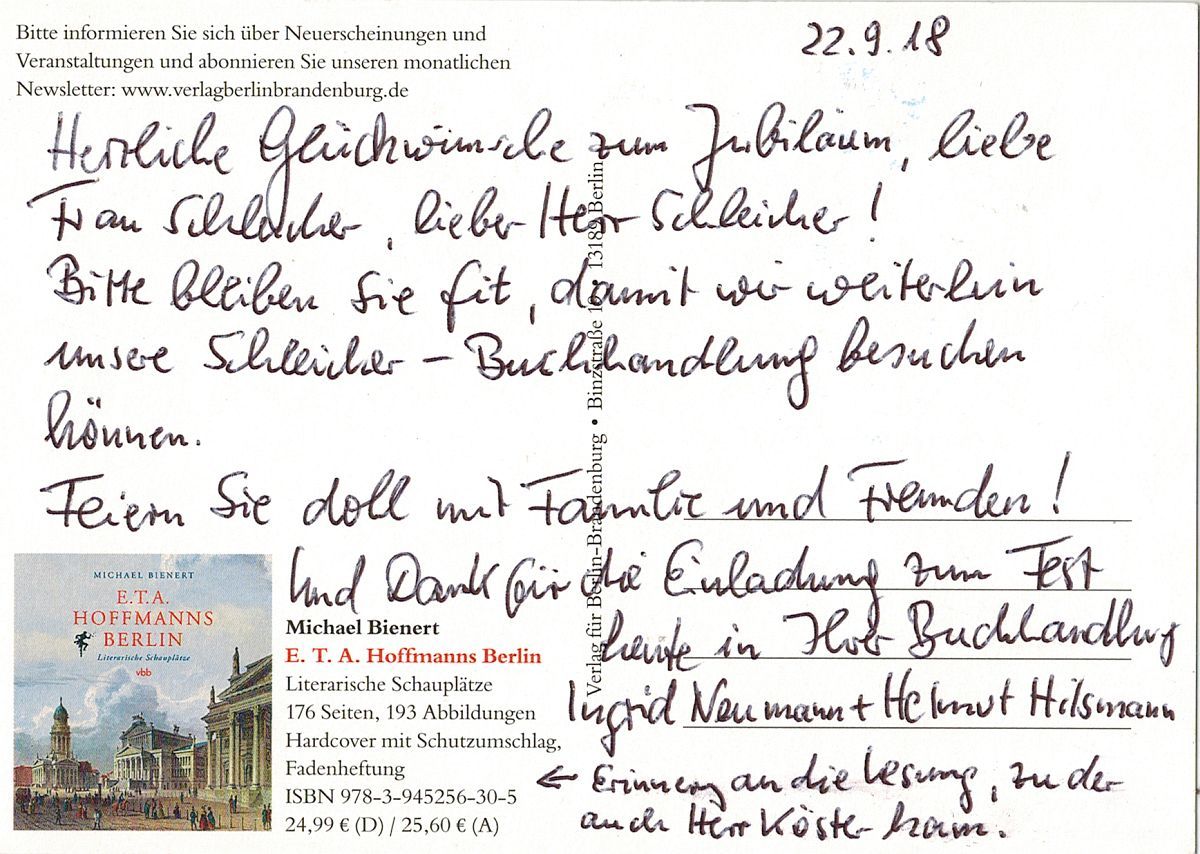 Bitte informieren Sie sich über Neuerscheinungen und
Veranstaltungen und abonnieren Sie unseren monatlichen
Newsletter: www.verlagberlinbrandenburg.de
22.9.18
Herzliche Glückwünsche zum Jubiläum, liebe
Frau Schleicher, lieber Herr Schleicher!
Bitte bleiben Sie fit, damit wir weiterhin
unsere Schleicher-Buchhandlung besuchen
können.
Feiern Sie doll mit Familie und Freunden!
Und Dank für die Einladung zum Fest
heute in Ihrer Buchhandlung
Ingrid Neumann + Helmut Hilsmann
← Erinnerung an die Lesung, zu der
auch Herr Köster kam.
Verlag für Berlin-Brandenburg • Binzstraße 19 13189 Berlin
MICHAEL BIENERT
E.T.A.
HOFFMANNS
BERLIN
Literarische Schauplätze
vbb
Michael Bienert
E. T. A. Hoffmanns Berlin
Literarische Schauplätze
176 Seiten, 193 Abbildungen
Hardcover mit Schutzumschlag,
Fadenheftung
ISBN 978-3-945256-30-5
24,99 € (D) / 25,60 € (A)